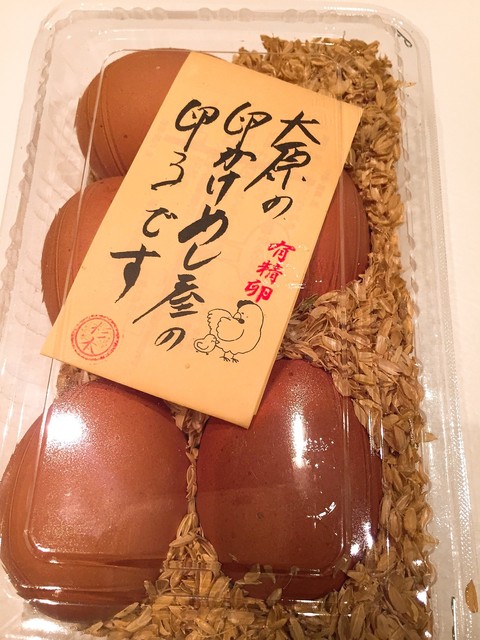 大原の
卵かけめし屋の
卵です
有精卵